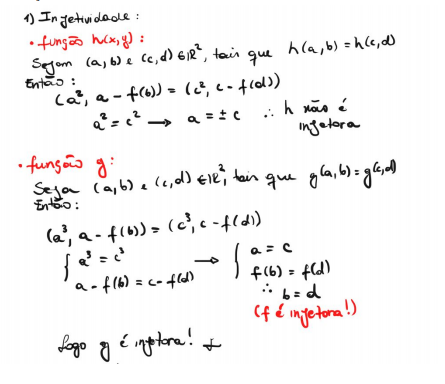 1) Injetividade:
• função h(x,y):
Sejam (a,b) e (c,d) ∈ ℝ², tais que h(a,b) = h(c,d)
Então:
(a², a - f(b)) = (c², c - f(d))
a² = c² → a = ± c ∴ h não é
injetora
• função g:
Seja (a,b) e (c,d) ∈ ℝ², tais que g(a,b) = g(c,d)
Então:
(a³, a - f(b)) = (c³, c - f(d))
{ a³ = c³
a - f(b) = c - f(d)
→ { a = c
f(b) = f(d)
∴ b = d
(f é injetora!)
Logo g é injetora!